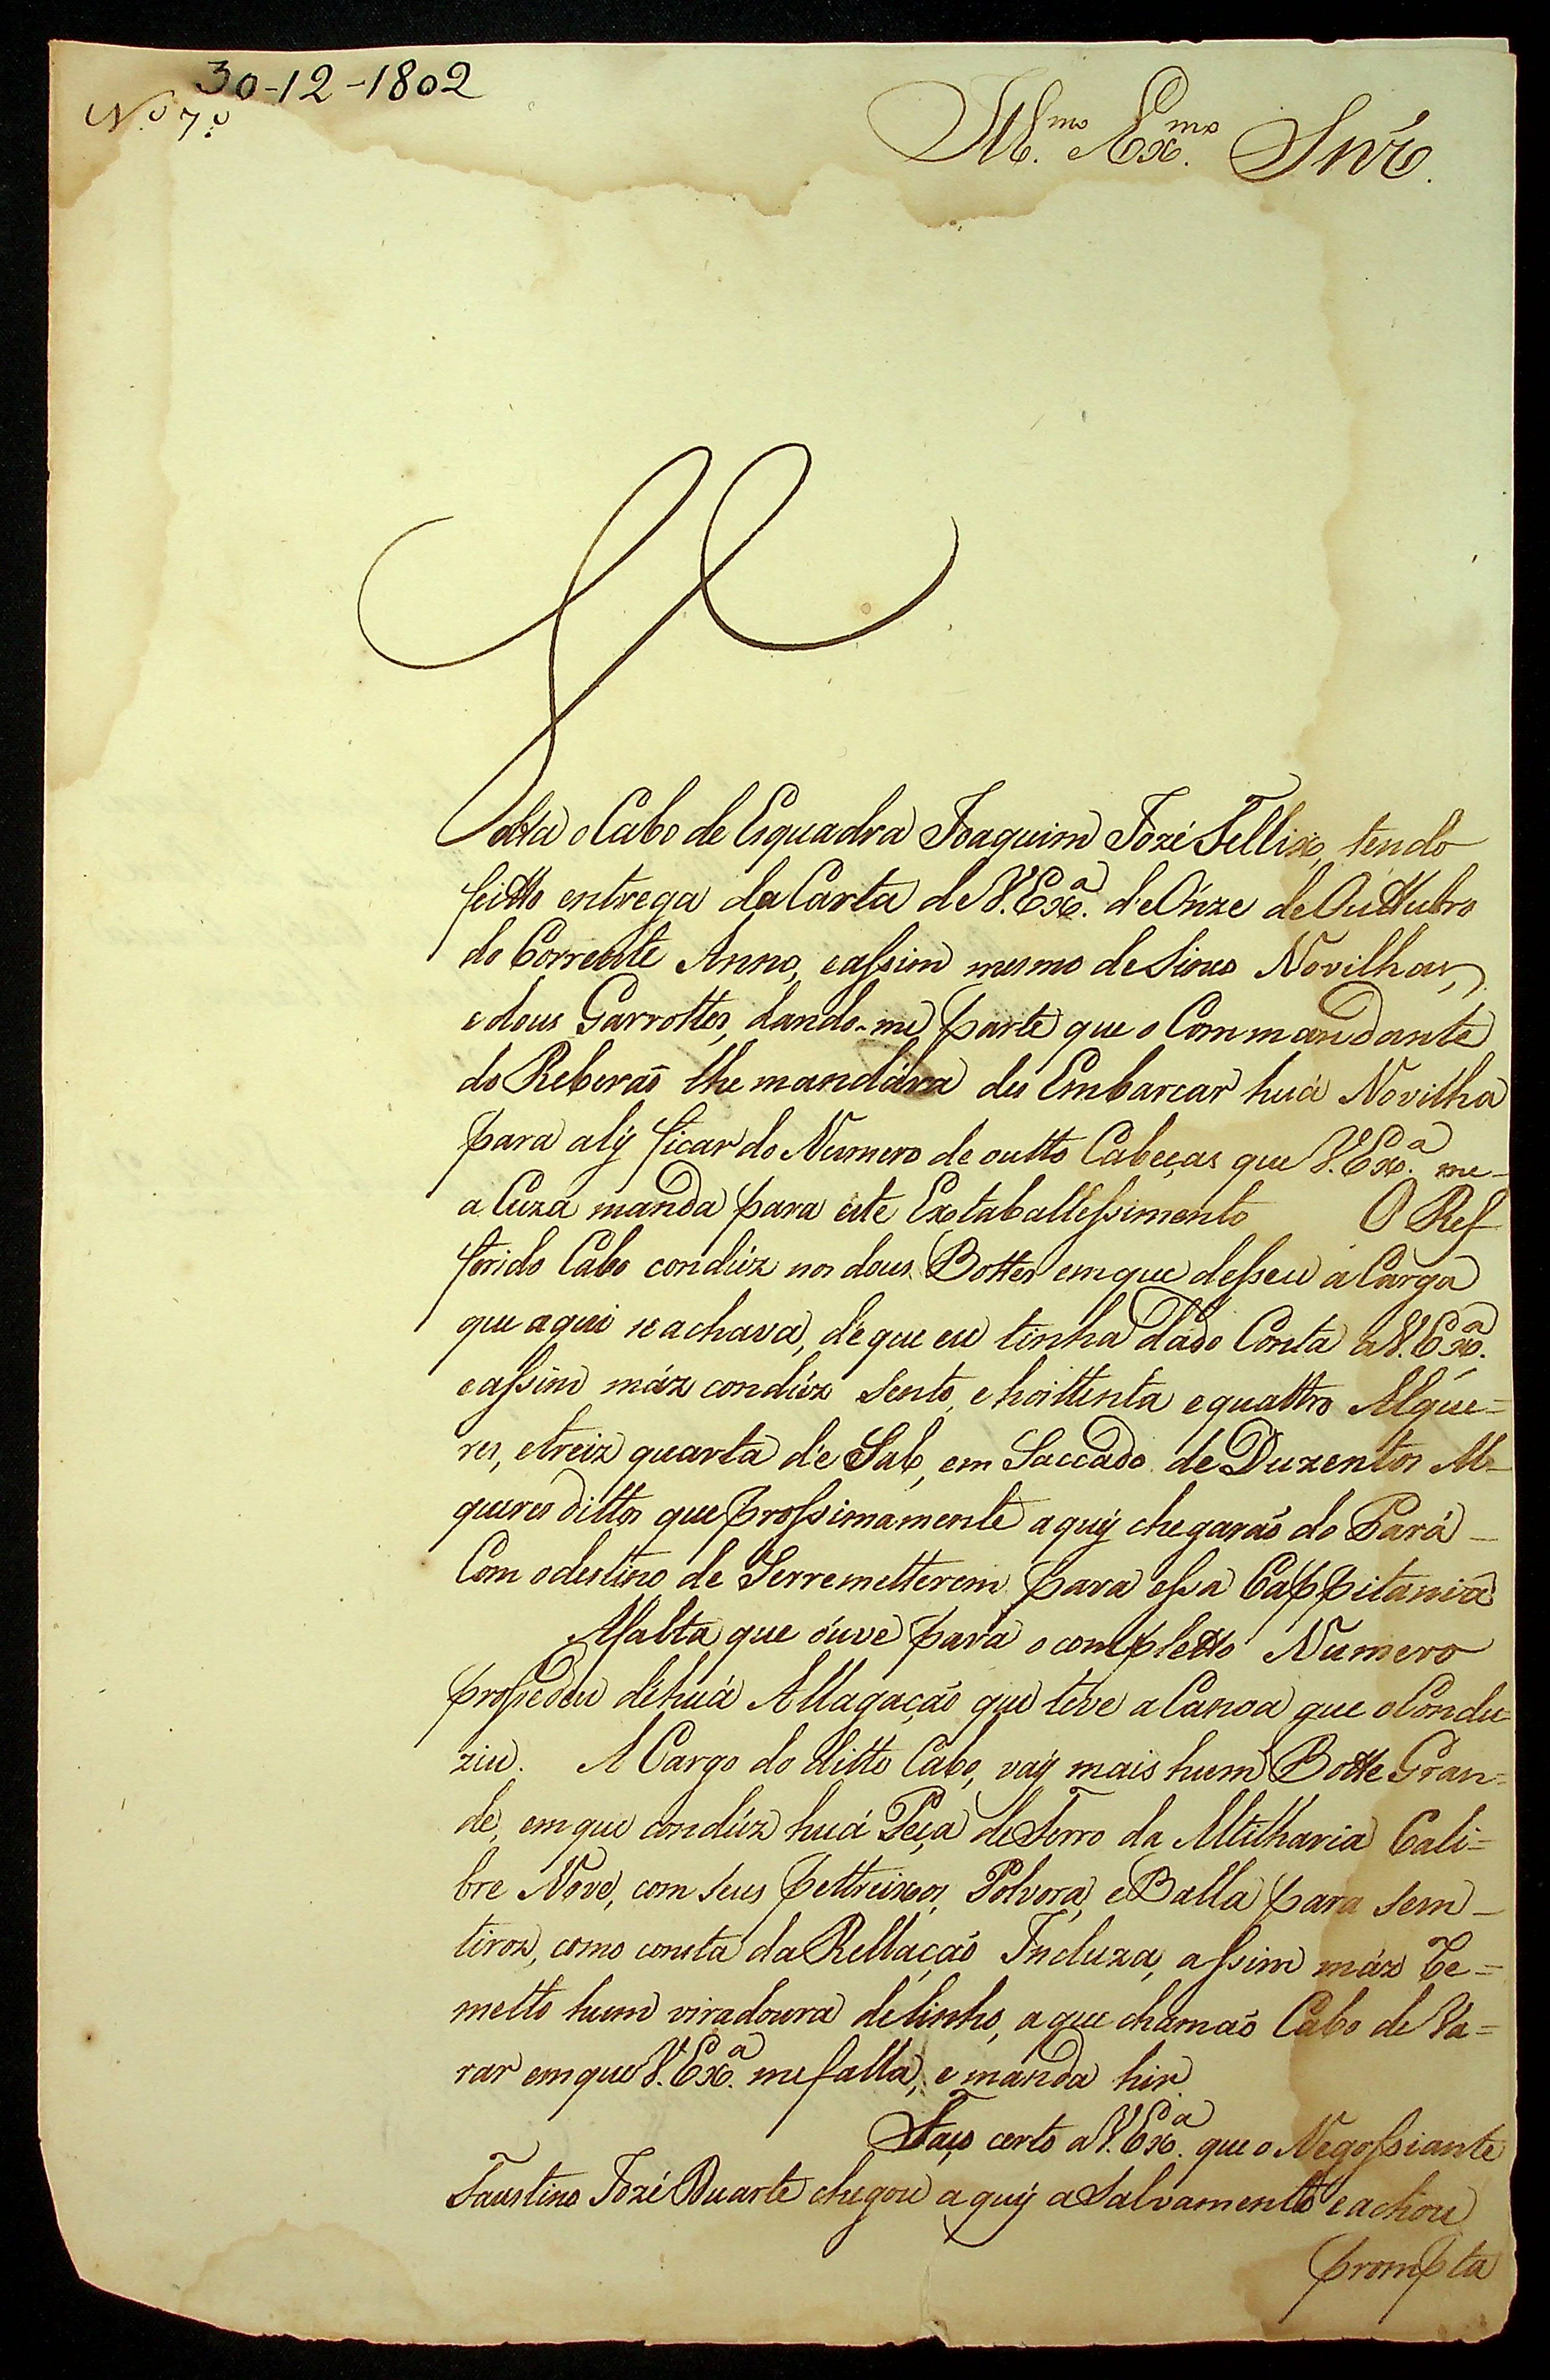 30-12-1802
N.º 7º
Ill.mo Ex.mo Snr̃.
Volta o Cabo de Esquadra Joaquim Jozé Fellix, tendo
feitto entrega da Carta de V. Ex.ª d'e Onze de Outtubro
do Corrente Anno, eassim mesmo de Sinco Novilhas,
e dous Garrottes, dando-me parte que o Commandante
do Reberaõ lhe mandára des Embarcar huá Novilha
para alÿ ficar do Numero de outto Cabeças que V. Ex.ª me
a Cuza manda para este Extabellessimento O Ref
ferido Cabo condúz nos dous Bottes emque desseu a Carga
que aqui se achava, d'e que eu tinha dado Conta a V. Ex.ª
eassim máz condúz sento, e hoittenta e quattro Alque=
res, etreiz quarta d'e Sal, em Saccado de Duzentos Al-
queres dittos que prossimamente aquÿ chegaraõ do Pará
Com odestino de Serremetterem para essa Cappitania
Afalta que óuve para o completto Numero
prossedeu d'e huá Allagaçaõ que teve a Canoa que o Condu
ziu. A Cargo do ditto Cabo, vaÿ mais hum Botte Gran=
de, em que condúz huá Peça de Ferro da Altilharia Cali=
bre Nove, com seus pettreixos, Polvora, e Balla para sem
tiros, como consta da Rellaçaõ Incluza, assim máz Re=
metto hum viradoura de linho, a que chamaõ Cabo de Va=
rar emque V. Ex.ª me falla, e manda hir.
Faço certo a V. Ex.ª que o Negossiante
Faustino Jozé Duarte chegou aquÿ a Salvamento e achou
prompta